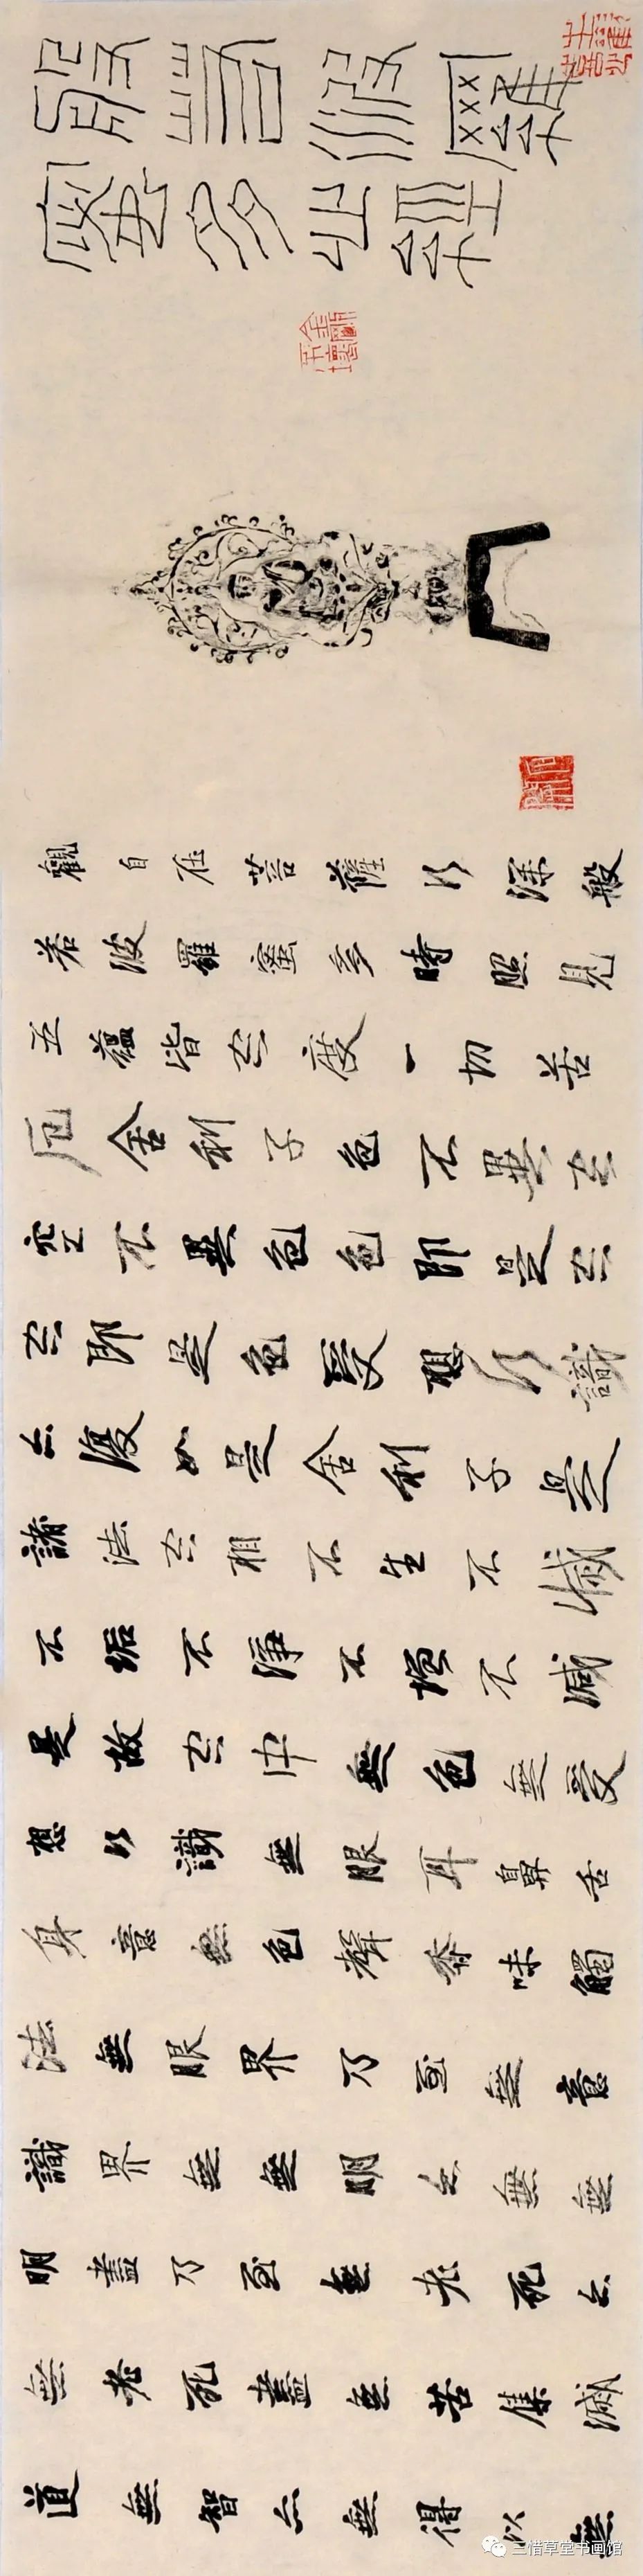 般若波羅
蜜多心經
觀自在菩薩行深般
若波羅蜜多時照見
五蘊皆空度一切苦
厄舍利子色不異空
空不異色色即是空
空即是色受想行識
亦復如是舍利子是
諸法空相不生不滅
不垢不淨不增不減
是故空中無色無受
想行識無眼耳鼻舌
身意無色聲香味觸
法無眼界乃至無意
識界無無明亦無無
明盡乃至無老死亦
無老死盡無苦集滅
道無智亦無得以無
三惜草堂书画馆